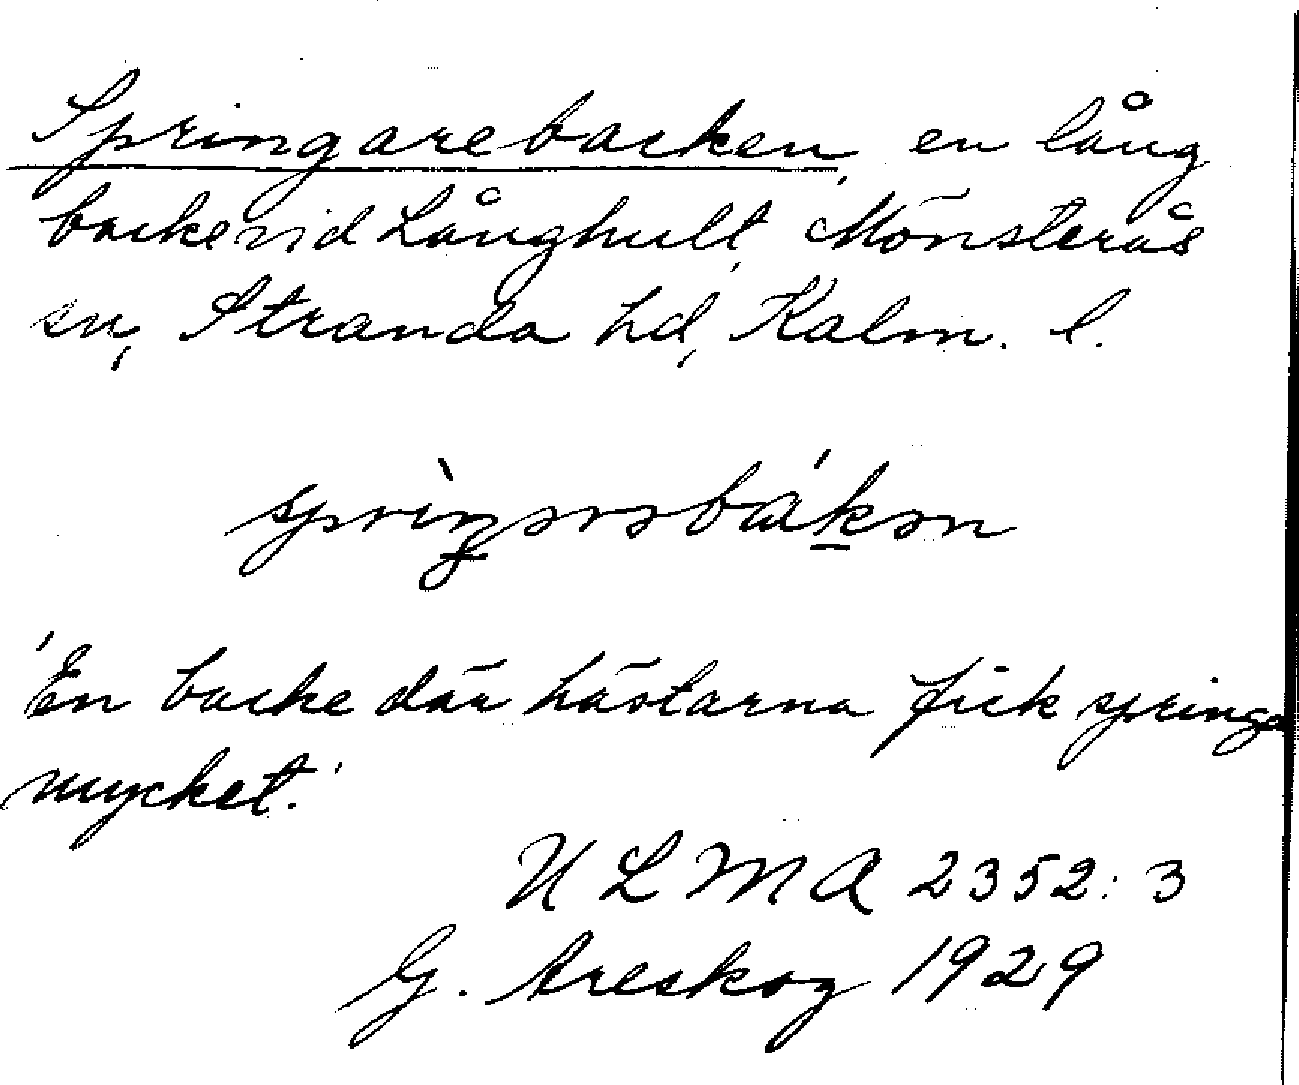 Springarebacken, en lång
backe vid Långhult, Mönsterås
sn, Stranda hd, Kalm. l.
'En backe där hästarna fick springa
mycket.'
ULMA 2352:3
G. Areskog 1929